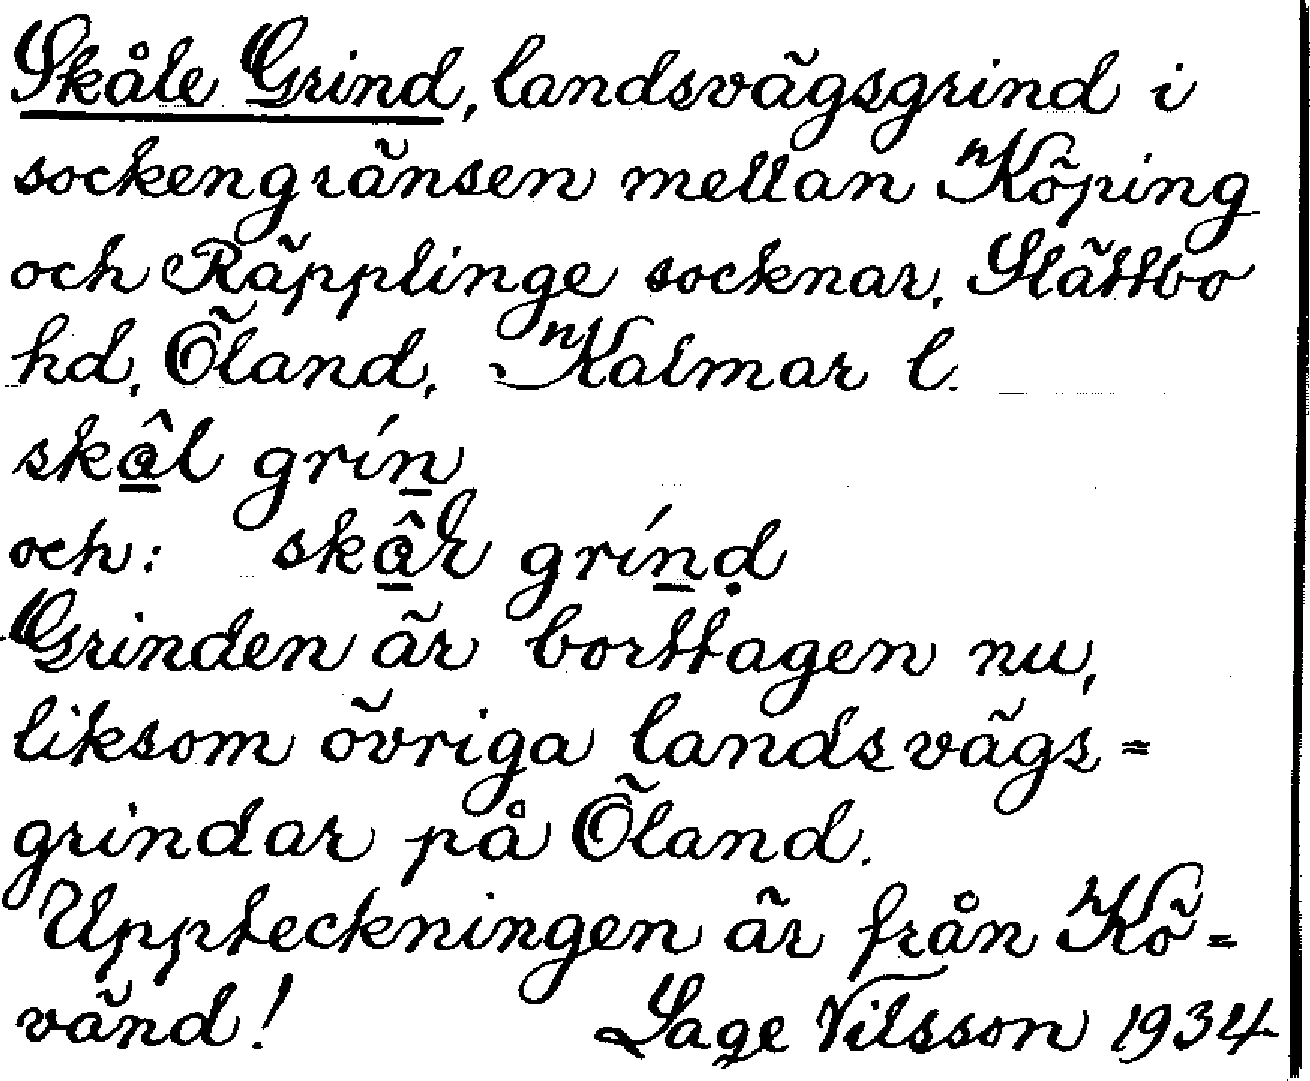 Skåle Grind, landsvägsgrind i
sockengränsen mellan Köping
och Räpplinge socknar, Slättbo
hd, Öland, Kalmar l.
skål grín
och: skår grínḍ
Grinden är borttagen nu,
liksom övriga landsvägs=
grindar på Öland.
Uppteckningen är från Kö=
vänd! Sage Nilsson 1934